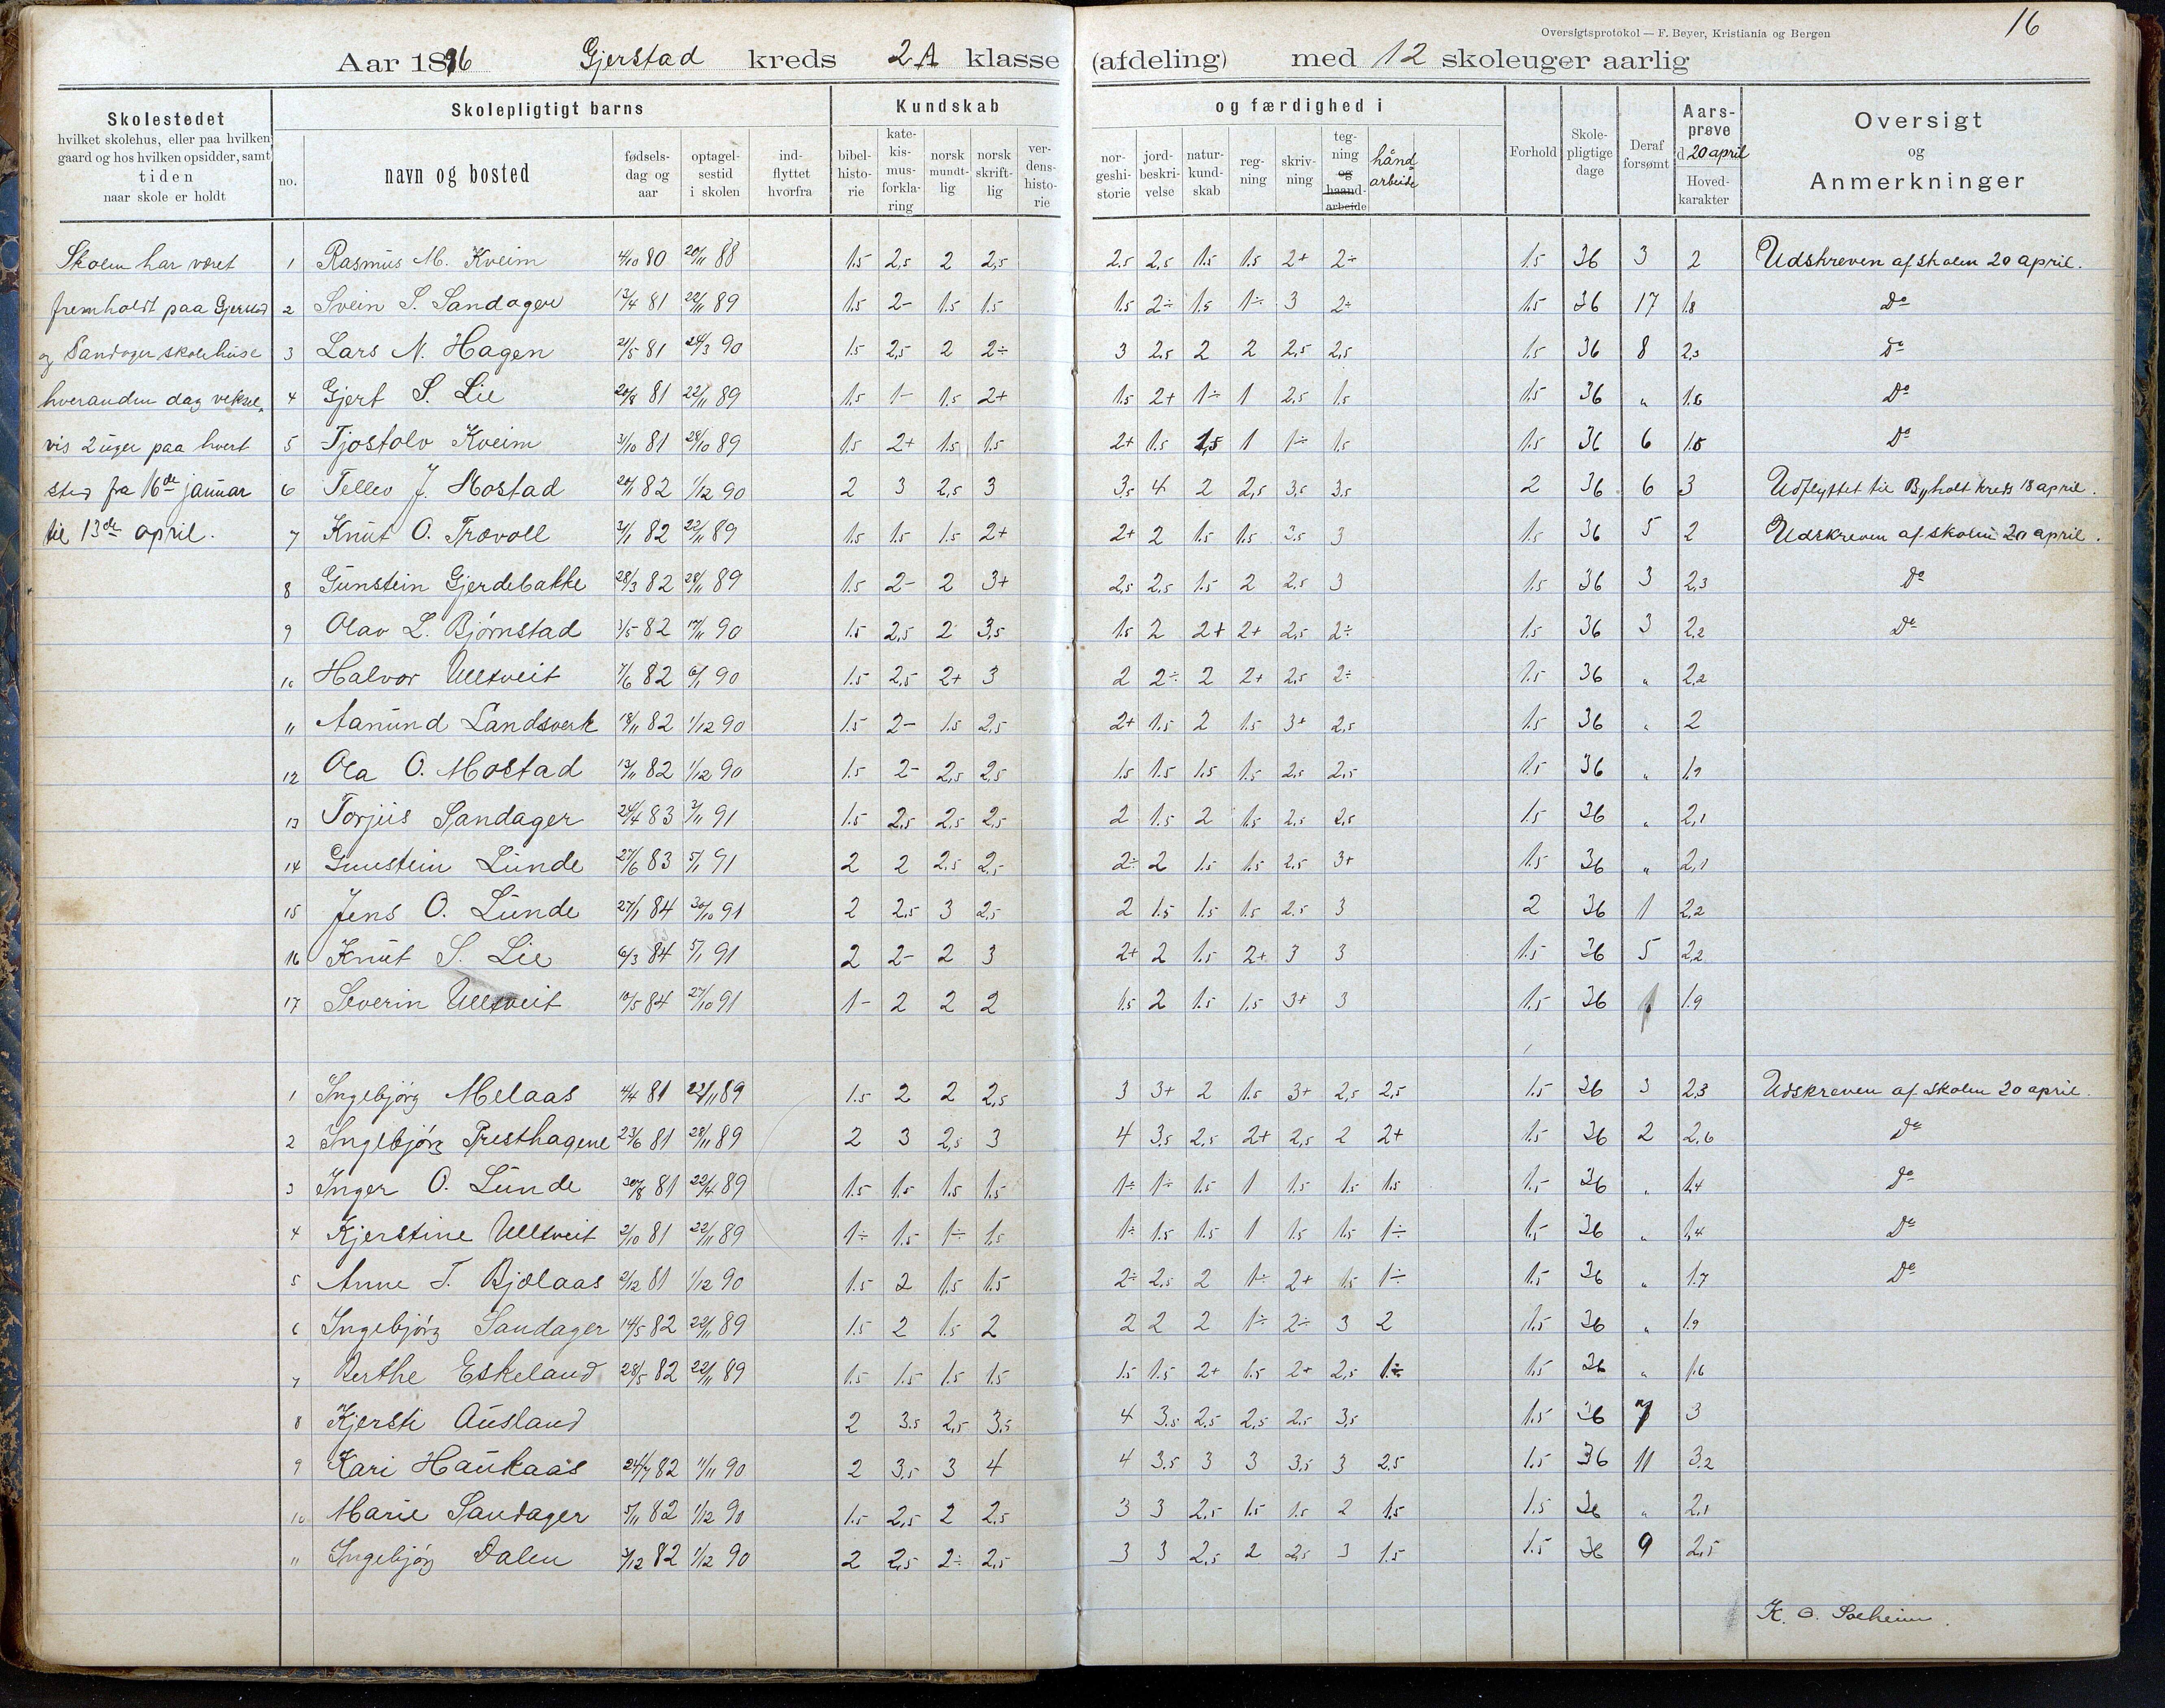 16
Oversigtsprotokol — F. Beyer, Kristiania og Bergen
Aar 1896 Gjerstad kreds 2A klasse (afdeling) med 12 skoleuger aarlig
Skolestedet
hvilket skolehus, eller paa hvilken
gaard og hos hvilken opsidder, samt
tiden
naar skole er holdt
Skolepligtigt barns
no. navn og bosted fødsels-dag og aar optagel-sestid i skolen ind-flyttet hvorfra
Kundskab og færdighed i
bibel-histo-rie kate-kis-mus-forkla-ring norsk mundt-lig norsk skrift-lig ver-dens-histo-rie nor-geshi-storie jord-beskri-velse natur-kund-skab reg-ning skriv-ning teg-ning og haand-arbeide hånd arbeide
Forhold Skole-pligtige dage Deraf forsømt Aars-prøve d. 20 april Hoved-karakter
Oversigt
og
Anmerkninger
Skolen har været
fremholdt paa Gjerstad
og Sandager skolehuse
hveranden dag veksel-
vis 2 uger paa hvert
sted fra 16de januar
til 13de april.
1 Rasmus M. Kveim 4/10 80 20/11 88 1.5 2,5 2 2,5 2,5 2,5 1.5 1.5 2+ 2÷ 1.5 36 3 2 Udskreven af skolen 20 april.
2 Svein S. Sandager 13/4 81 22/11 89 1.5 2- 1.5 1.5 1.5 2÷ 1.5 1÷ 3 2÷ 1.5 36 17 1.8 Do
3 Lars N. Hagen 21/5 81 24/3 90 1.5 2,5 2 2÷ 3 2,5 2 2 2,5 2,5 1.5 36 8 2,3 Do
4 Gjert S. Lie 20/8 81 22/11 89 1.5 1- 1.5 2+ 1.5 2+ 1÷ 1 2,5 1.5 1.5 36 „ 1.6 Do
5 Tjostolv Kveim 31/10 81 28/10 89 1.5 2+ 1.5 1.5 2+ 1.5 1,5 1 1÷ 1.5 1.5 36 6 1.5 Do
6 Tellev J. Mostad 20/1 82 1/12 90 2 3 2,5 3 3,5 4 2 2,5 3,5 3,5 2 36 6 3 Udflyttet til Byholt kreds 18 april.
7 Knut O. Trævoll 3/1 82 22/11 89 1.5 1.5 1.5 2+ 2+ 2 1.5 1.5 3,5 3 1.5 36 5 2 Udskreven af skolen 20 april.
8 Gunstein Gjerdebakke 28/3 82 28/11 89 1.5 2- 2 3+ 2,5 2,5 1.5 2 2,5 3 1.5 36 3 2,3 Do
9 Olav L. Bjørnstad 3/5 82 17/11 90 1.5 2,5 2 3,5 1.5 2 2+ 2+ 2,5 2÷ 1.5 36 3 2,2 Do
10 Halvor Ulltveit 7/6 82 6/1 90 1.5 2,5 2+ 3 2 2÷ 2 2+ 2,5 2÷ 1.5 36 „ 2,2
11 Aanund Landsverk 18/11 82 1/12 90 1.5 2- 1.5 2,5 2+ 1.5 2 1.5 3+ 2,5 1.5 36 „ 2
12 Ola O. Mostad 13/11 82 1/12 90 1.5 2- 2,5 2,5 1.5 1.5 1.5 1.5 2,5 2,5 1.5 36 „ 1.9
13 Torjus Sandager 24/4 83 2/11 91 1.5 2,5 2,5 2,5 2 1.5 2 1.5 2,5 2,5 1.5 36 „ 2,1
14 Gunstein Lunde 27/6 83 5/1 91 2 2 2,5 2,5 2÷ 2 1.5 1.5 2.5 3+ 1.5 36 „ 2,1
15 Jens O. Lunde 27/1 84 30/10 91 2 2,5 3 2,5 2 1.5 1.5 1.5 2.5 3 2 36 1 2,2
16 Knut S. Lie 6/3 84 5/1 91 2 2- 2 3 2+ 2 1.5 2+ 3 3 1.5 36 5 2,2
17 Severin Ulltveit 10/5 84 27/10 91 1- 2 2 2 1.5 2 1.5 1.5 3+ 3 1.5 36 1.9
1 Ingebjörg Melaas 4/4 81 22/11 89 1.5 2 2 2,5 3 3+ 2 1.5 3+ 2,5 2,5 1.5 36 3 2,3 Udskreven af skolen 20 april.
2 Ingebjörg Presthagene 23/6 81 28/11 89 2 3 2,5 3 4 3,5 2,5 2+ 2,5 2 2+ 1.5 36 2 2,6 Do
3 Inger O. Lunde 30/8 81 22/4 89 1.5 1.5 1.5 1.5 1÷ 1÷ 1.5 1 1.5 1.5 1.5 1.5 36 „ 1.4 Do
4 Kjerstine Ulltveit 2/10 81 22/11 89 1÷ 1.5 1÷ 1.5 1÷ 1.5 1.5 1 1.5 1.5 1÷ 1.5 36 „ 1,4 Do
5 Anne T. Bjølaas 2/12 81 1/12 90 1.5 2 1.5 1.5 2÷ 2,5 2 1÷ 2+ 1.5 1÷ 1.5 36 „ 1.7 Do
6 Ingebjörg Sandager 14/5 82 22/11 89 1.5 2 1.5 2 2 2 2 1÷ 2÷ 3 2 1.5 36 „ 1.9
7 Berthe Eskeland 28/5 82 22/11 89 1.5 1.5 1.5 1.5 1.5 1.5 2+ 1.5 2+ 2,5 1÷ 1.5 36 „ 1.6
8 Kjersti Ausland 2 3.5 2,5 3,5 4 3.5 2,5 2,5 2,5 3,5 1.5 36 7 3
9 Kari Haukaas 24/7 82 11/11 90 2 3,5 3 4 4 3.5 3 3 3,5 3 2.5 1.5 36 11 3.2
10 Marie Sandager 5/11 82 1/12 90 1.5 2,5 2 2,5 3 3 2,5 1.5 1.5 2 1.5 1.5 36 „ 2,1
11 Ingebjörg Dalen 3/12 82 1/12 90 2 2,5 2÷ 2,5 3 3 2,5 2 2,5 3 1.5 1.5 36 9 2,5
K. O. Solheim.